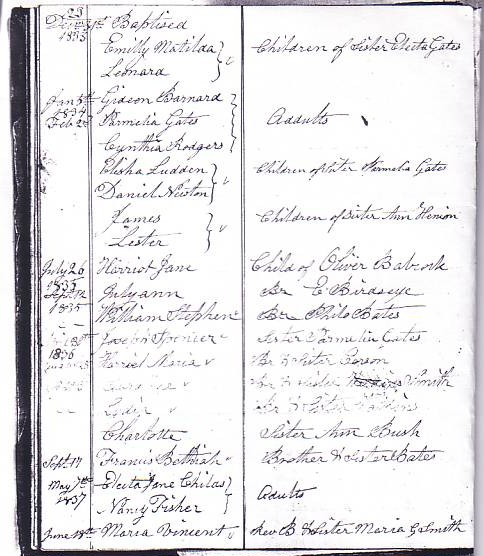 29
Baptised
1833
Emilly Matilda } " Children of Sister Electa Gates
Leonard
Jan 5th Gideon Barnard
1834 Addults
Feb 23 Parmelia Gates
Cynthia Rodgers
Elisha Ludden } " Children of Sister Permelia Gates
Daniel Newton
James } " Children of Sister Ann Henion
Lester
July 26 Harriot Jane Child of Oliver Babcock
1835
Sept 12 Julyann Br E Birdseye
1835
– – William Stephen Br Philo Bates
Joseph Spencer " Sister Parmelia Gates
1836
Hariel Maria " Br & Sister
" Br & Sister Smith
– – Lydia " Br & Sister
Charlotte Sister Ann Bush
Sept 17 Francis Bethiah " Brother & Sister Bates
May 7th Electa Jane Childs } Adults
1837
Nancy Fisher
June 18th Maria Vincent " Rev B & Sister Maria G Smith